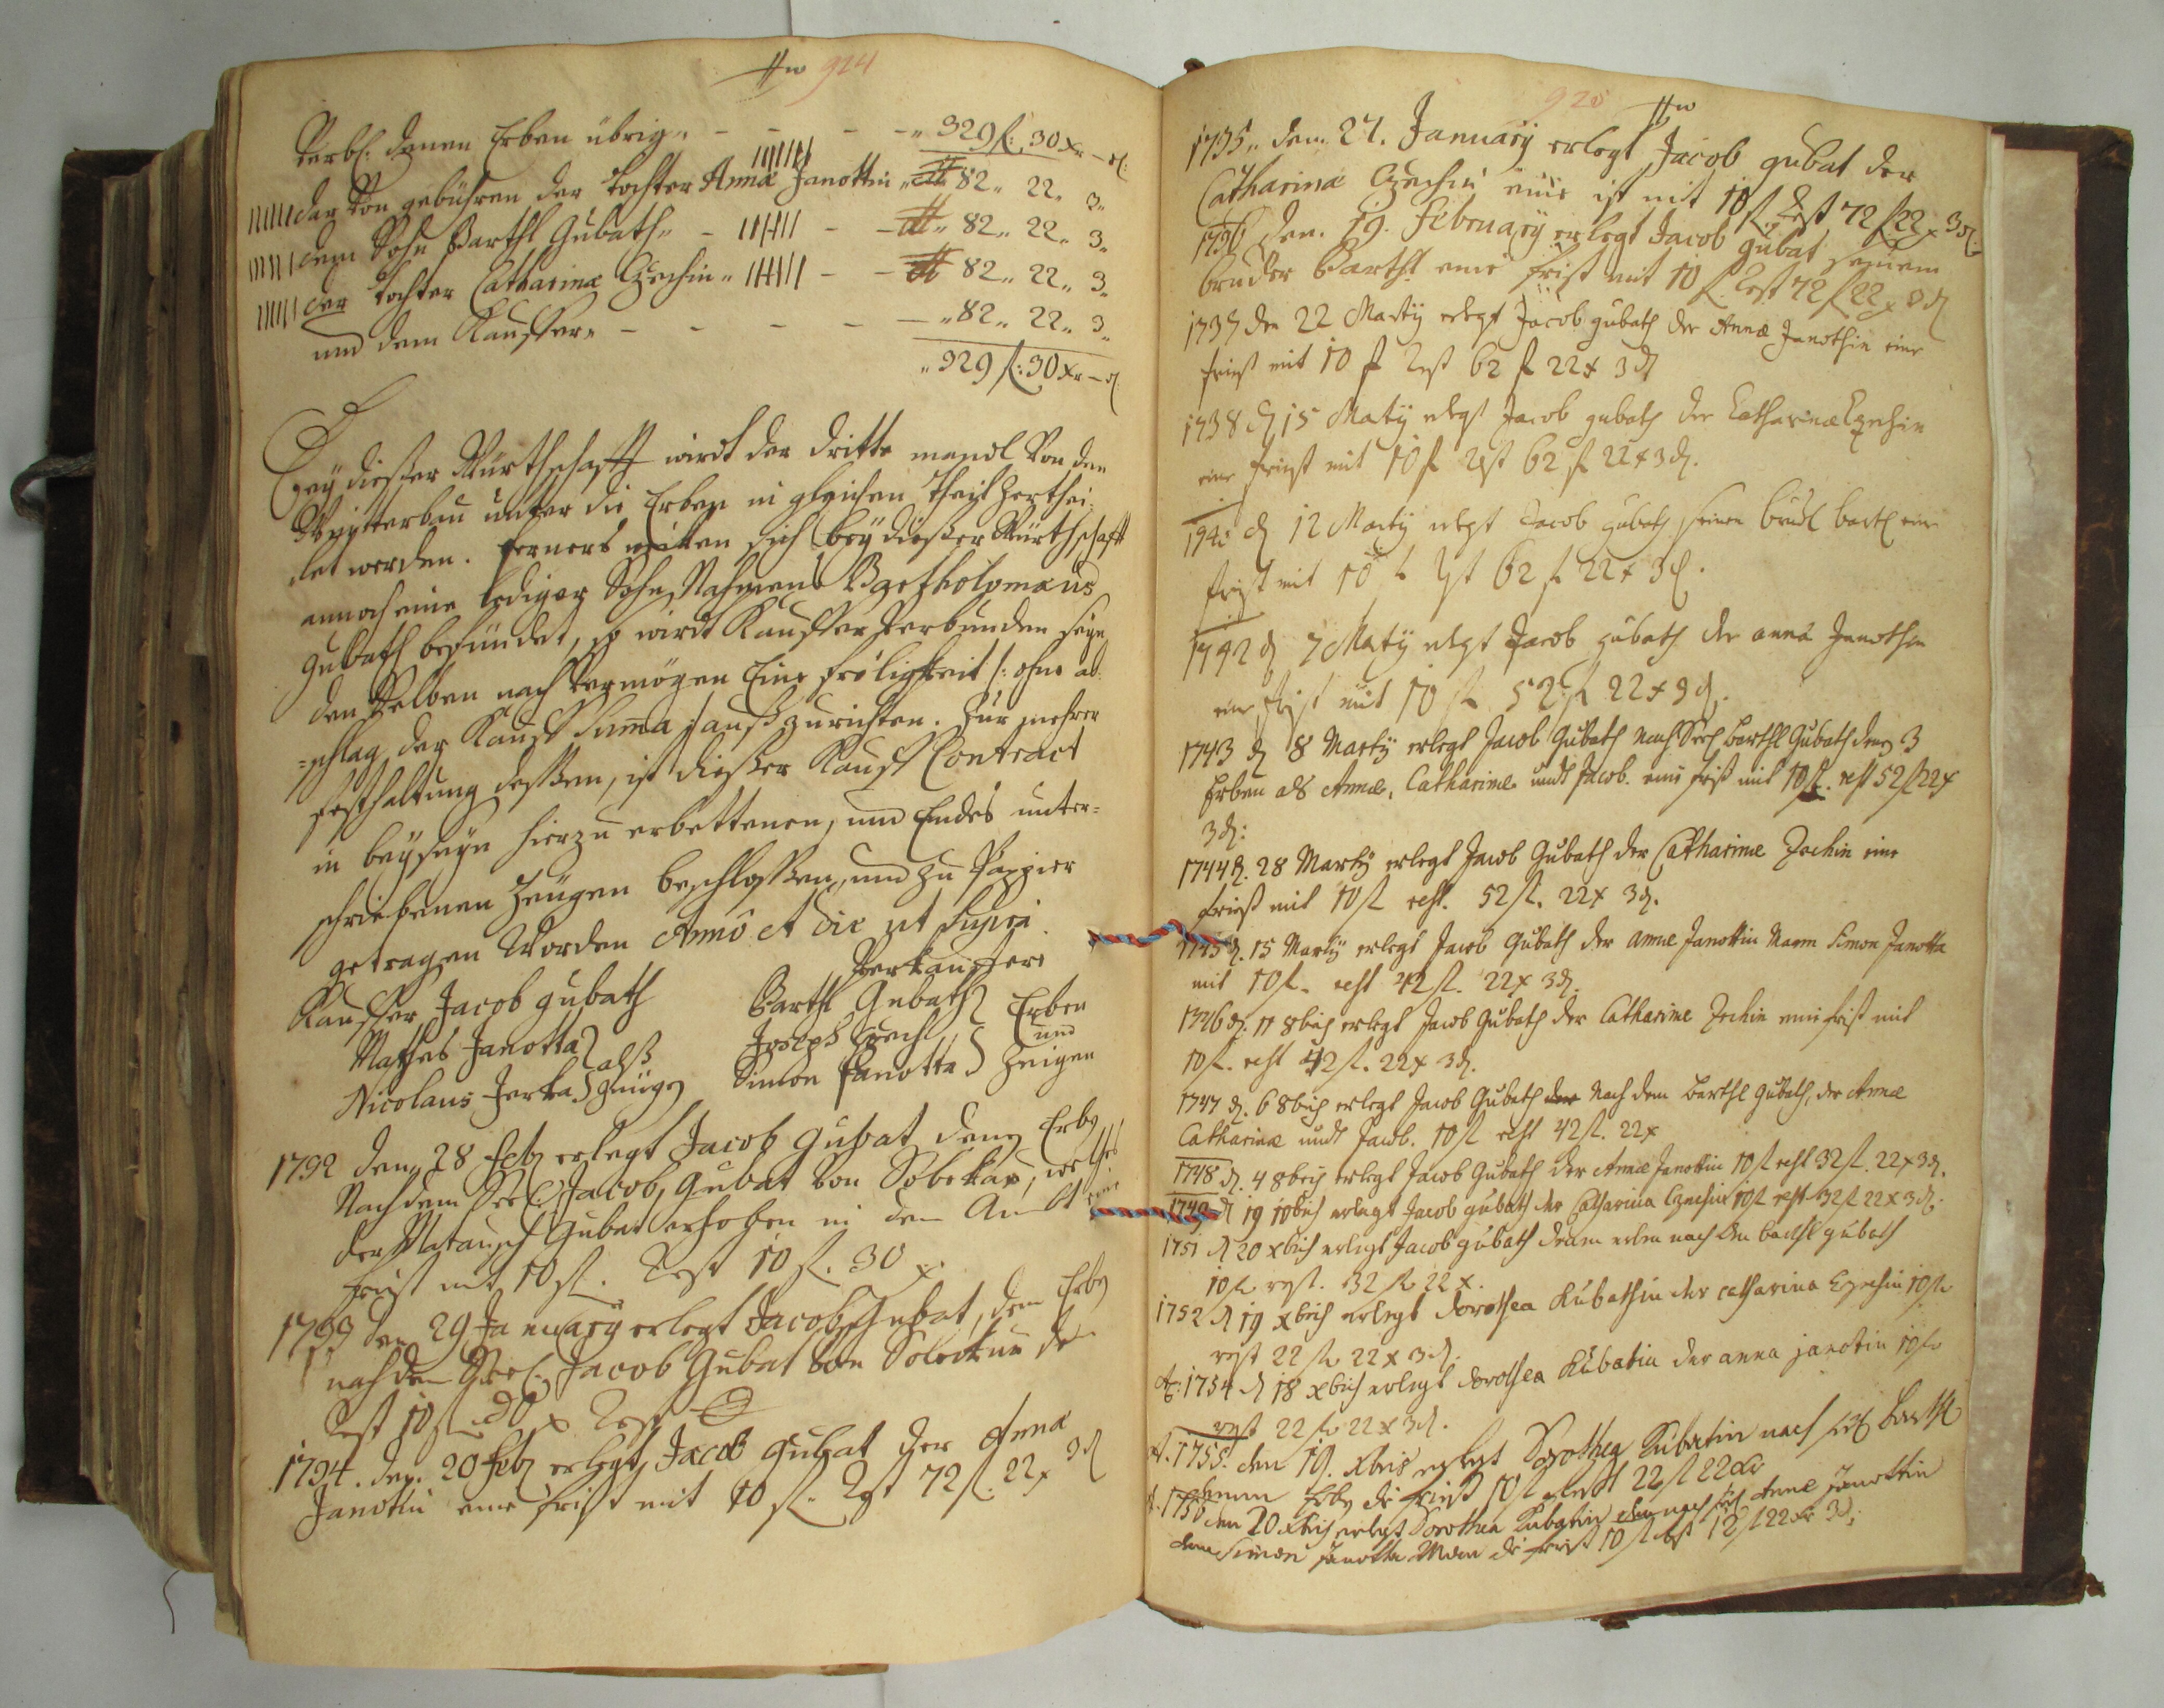 924
Verbl: denen Erben übrig „ - - - - „ 329 f: 30 xr - d:
darvon gebühren der Tochter Annæ Janottin „ 82 „ 22 „ 3 „
dem Sohn Barthl Gubath „ - - - „ 82 „ 22 „ 3 „
der Tochter Catharinæ Czechin „ - - 82 „ 22 „ 3 „
und dem Kauffer „ - - - - - „ 82 „ 22 „ 3 „
„ 329 f: 30 xr - d
Bey dießer Würthschafft wirdt der dritte mandl von den
Wintterbau unter die Erben in gleichen Theil zerthei-
let werden. Ferners sich bey dießer Würthschafft
annoch eine lediger Sohn Nahmens Bartholomæus
Gubath befündet, so wirdt Kauffer verbunden seyn
denselben nach Vermögen Eine Fröligkeit /: ohne ab-
schlag der Kauff Suma :/ außzurichten. Zur mehrer
festhaltung deßßen, ist dießer Kauff Contract
in beyseyn hierzu erbettenen, und Endes unter-
schriebenen Zeugen beschloßßen, und zu Pappier
getragen Worden Anno et die ut supra.
Verkauffere
Kauffer Jacob gubath Barthl Gubath Erben
Mathes Janotta alß Joseph Czechl und
Nicolaus Jerka Zeügen Simon Janotta Zeigen
1732 den 28 Feb erlegt Jacob Gubat denen Erben
Nach dem Seel: Jacob Gubat von
der Gubat erhoben in dem Ambt eine
Frist mit 10 fl. Rest 10 fl. 30 x.
1733 den 29 January erlegt Jacob Gubat, den Erben
nach dem Seel. Jacob Gubat von
Rest 10 fl 30 x Rest
1734. den 20 Feb erlegt Jacob Gubat der Anna
Janotin eine Frist mit 10 fl. Rest 72 fl. 22 x 3 d
925
1735 „ den 27. January erlegt Jacob gubat der
Catharinæ Czechin eine ist mit 10 fl Rest 72 fl 22 x 3 d.
1736 den 19. February erlegt Jacob Gubat seinem
bruder Barthl eine Frist mit 10 fl. Rest 72 fl 22 x 3 d
1737 den 22 Marty erlegt Jacob gubath der Annæ Janothin eine
Frist mit 10 fl Rest 62 fl 22 x 3 d
1738 d 15 Marty erlegt Jacob gubath der Catharinæ Czechin
eine Frist mit 10 fl Rest 62 fl 22 x 3 d.
d 12 Marty erlegt Jacob gubath seinen brudl bartl eine
Frist mit 10 fl Rest 62 fl 22 x 3 d.
1742 d 7 Marty erlegt Jacob gubath der anna Janothin
eine Frist mit 10 fl 52 fl 22 x 3 d.
1743 d 8 Marty erlegt Jacob Gubath nach Seel Barthl Gubath denen 3
Erben als Annæ, Catharinæ undt Jacob. eine Frist mit 10 fl. rest 52 fl 22 x
3 d:
1744 d. 28 Marty erlegt Jacob Gubath der Catharinæ Zechin eine
Frist mit 10 fl rest. 52 fl. 22 x 3 d.
1745 d. 15 Marty erlegt Jacob Gubath der annæ Janottin Mann Simon Janotta
mit 10 fl. rest 42 fl. 22 x 3 d.
1746 d. 11 8bris erlegt Jacob Gubath der Catharinæ Zechin eine frist mit
10 fl. rest 42 fl. 22 x 3 d.
1747 d. 6 8bris erlegt Jacob Gubath der Nach dem Barthl Gubath, der Annæ
Catharinæ undt Jacob. 10 fl rest 42 fl. 22 x
1748 d. 4 8bris erlegt Jacob Gubath der Annæ Janottin 10 fl rest 32 fl. 22 x 3 d.
1749 d 19 10bris erlegt Jacob gubath der Catharina Czechin 10 fl rest 32 fl 22 x 3 d.
1751 d 20 xbris erlegt Jacob gubath denen erben nach den barthl gubath
10 fl rest. 32 fl 22 x.
1752 d 19 xbris erlegt dorothea Kubathin der catharina Czechin 10 fl
rest 22 fl 22 x 3 d.
Ao: 1754 d 18 xbris erlegt dorothea Kubatin der anna janotin 10 fl
rest 22 fl 22 x 3 d.
A. 1755. den 19. Xbris erlegt Dorothea Kubatin nach seel Barthl
denen Erben die Frist 10 fl Rest 22 fl 22 xr
A. 1756 den 20 xbris erlegt Dorothea Kubatin nach seel Annæ Janottin
dem Simon Janotta die Frist 10 fl Rest 12 fl 22 xr 3 d.